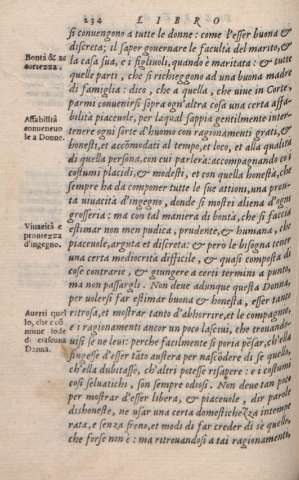 234 LIBRO
si conuengono a tutte le donne: come l'esser buona &
discreta; il saper gouernare le facultà del marito, &
Bontà &
la casa sua, e i figliuoli, quando è maritata: & tutte
quelle parti, che si richeggono ad una buona madre
di famiglia: dico, che a quella, che uiue in Corte,
parmi conuenirsi sopra ogn'altra cosa una certa affa-
Affabilità
bilità piaceuole, per laqual sappia gentilmente inter-
conueneuo
tenere ogni sorte d'huomo con ragionamenti grati, &
le a Donne.
honesti, et accōmodati al tempo, et loco, et alla qualità
di quella persona, con cui parlerà: accompagnando co i
costumi placidi, & modesti, et con quella honestà, che
sempre ha da componer tutte le sue attioni, una pron-
ta uiuacità d'ingegno, donde si mostri aliena d'ogni
grosseria: ma con tal maniera di bontà, che si faccia
Viuacità e
estimar non men pudica, prudente, & humana, che
prontezza
piaceuole, arguta et discreta: & però le bisogna tener
d'ingegno.
una certa mediocrità difficile, & quasi composta di
cose contrarie, & giungere a certi termini a punto,
ma non passargli. Non deue adunque questa Donna,
per uolersi far estimar buona & honesta, esser tanto
Auerti quel
ritrosa, et mostrar tanto d'abhorrire, et le compagne,
lo, che e cō
e i ragionamenti ancor un poco lasciui, che trouando-
mune lode
uisi se ne leui: perche facilmente si poria pēsar, ch'ella
di ciascuna
fingesse d'esser tāto austera per nascōdere di se quello,
Donna.
ch'ella dubitasse, ch'altri potesse risapere: e i costumi
così seluatichi, son sempre odiosi. Non deue tan poco
per mostrar d'esser libera, & piaceuole, dir parole
dishoneste, ne usar una certa domestichezza intempe
rata, e senza freno, et modi da far creder di se quello,
che forse non è: ma ritrouandosi a tai ragionamenti,